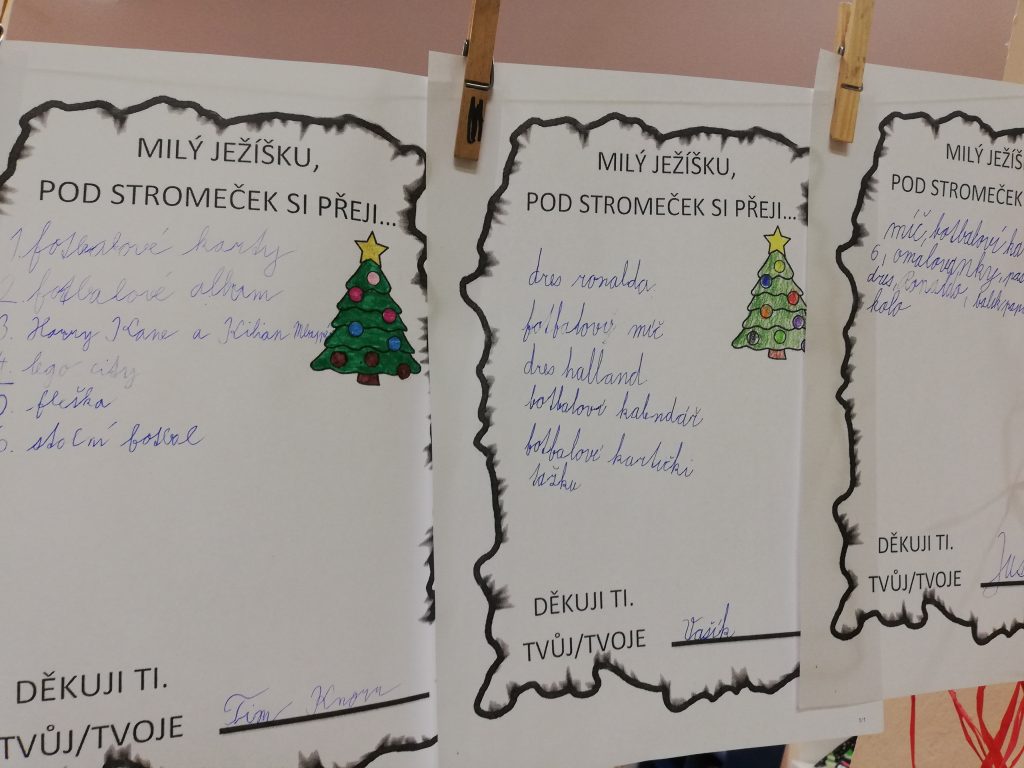 MILÝ JEŽÍŠKU,
POD STROMEČEK SI PŘEJI...
1. fotbalové karty
2. fotbalové album
3. Harry Kane a Kilian
4. lego city
5. fleška
6. stolní fotbal
DĚKUJI TI.
TVŮJ/TVOJE Tim
MILÝ JEŽÍŠKU,
POD STROMEČEK SI PŘEJI...
dres ronalda
fotbalový míč
dres halland
fotbalové kalendář
fotbalové kartički
tašku
DĚKUJI TI.
TVŮJ/TVOJE Vašík
1/1
MILÝ JEŽÍŠ
POD STROMEČEK
míč, fotbalové ka
6, omalovanky,
dres, Ronaldo,
kolo
DĚKUJI TI.
TVŮJ/TVOJE